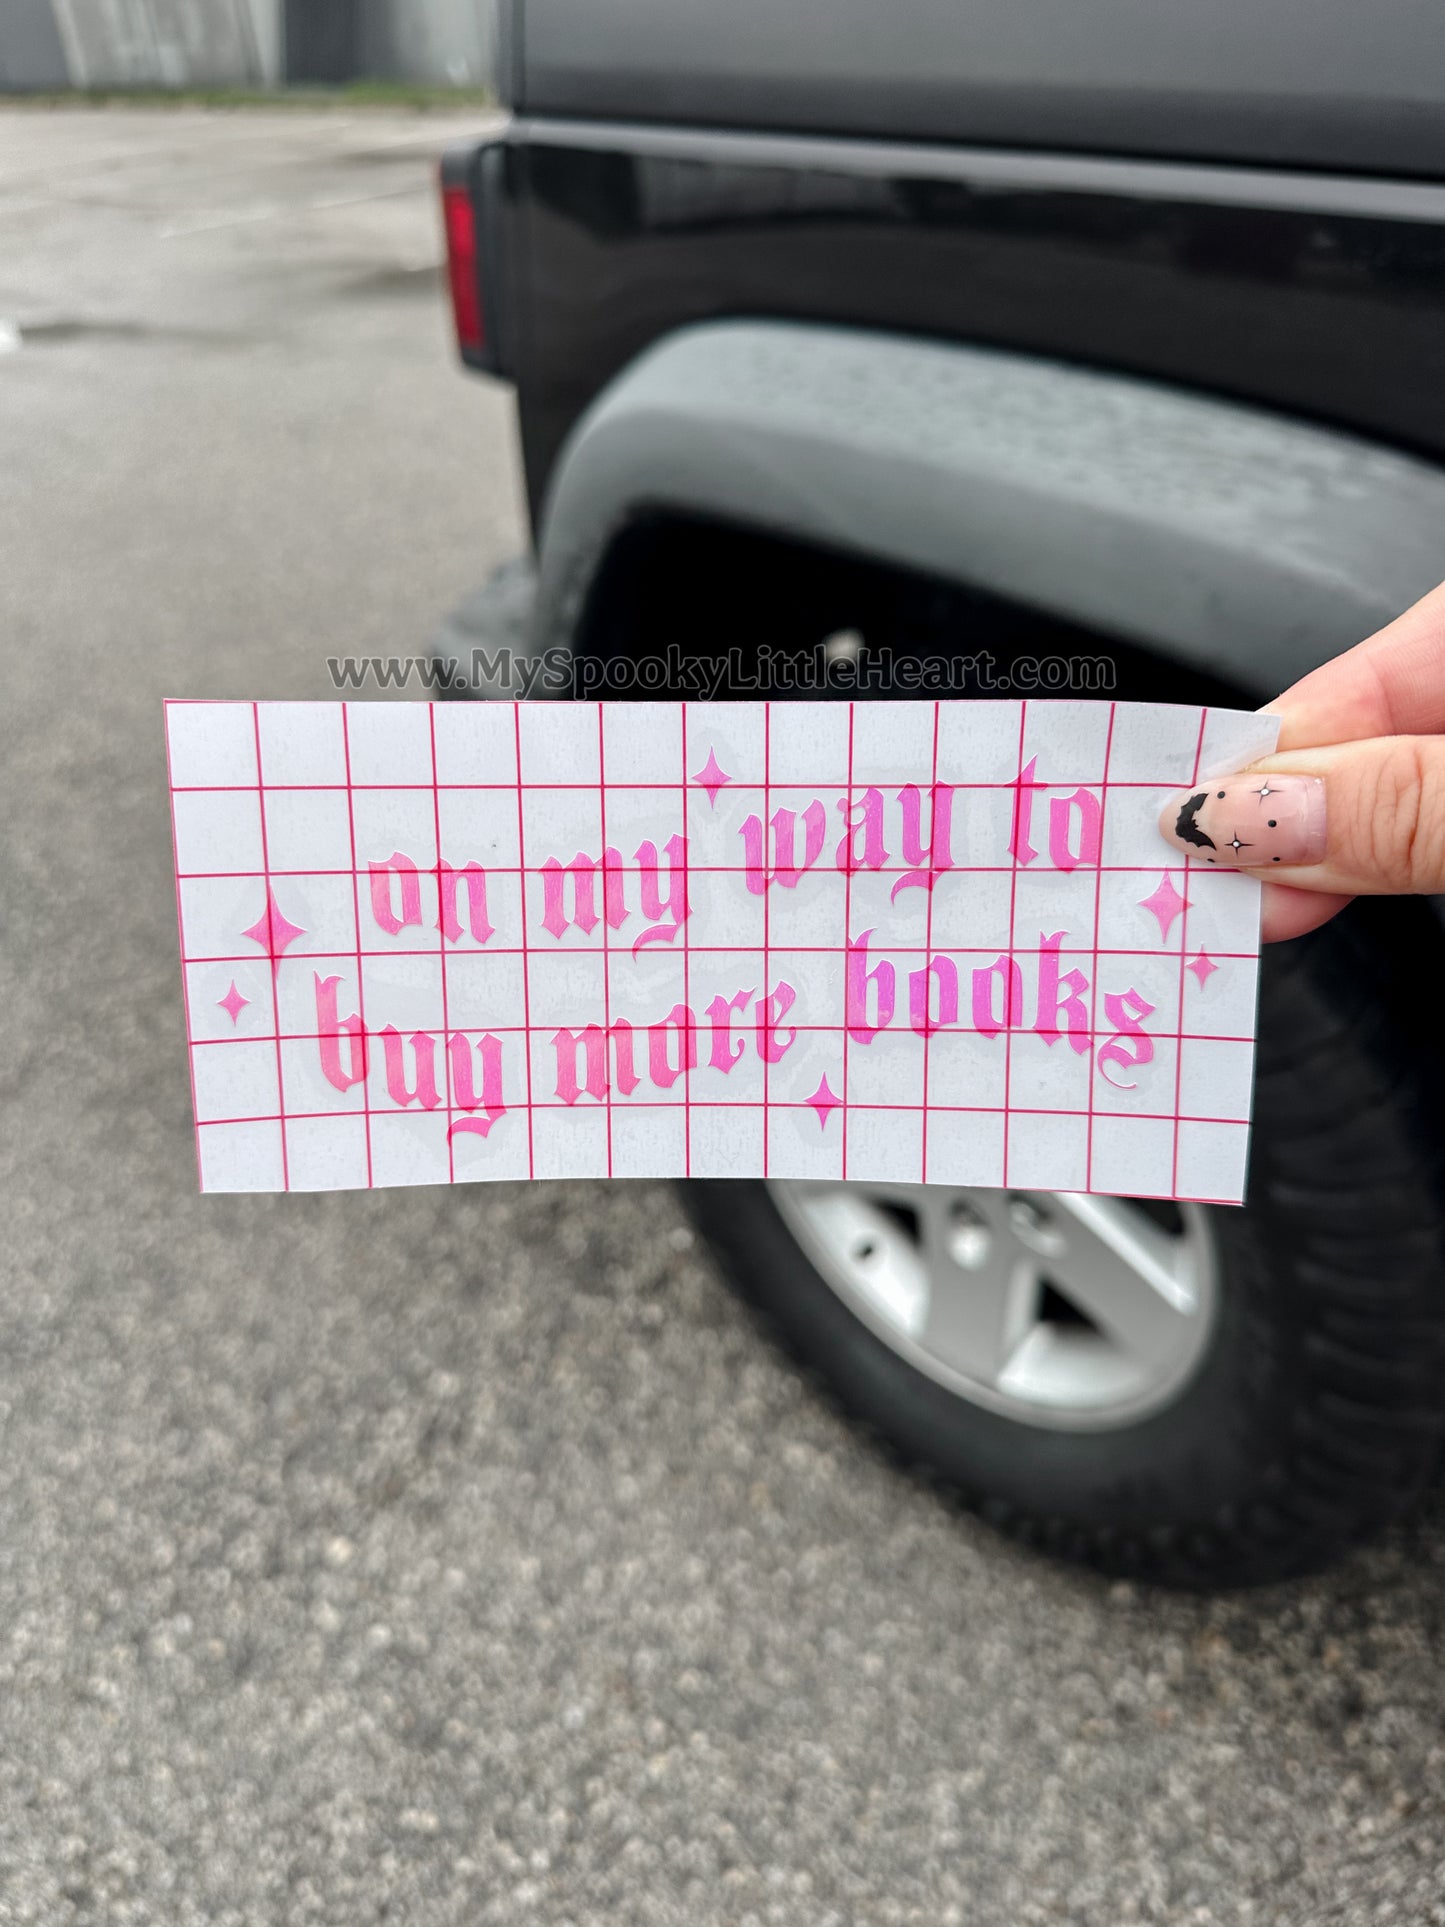 www.MySpookyLittleHeart.com
on my way to
buy more books